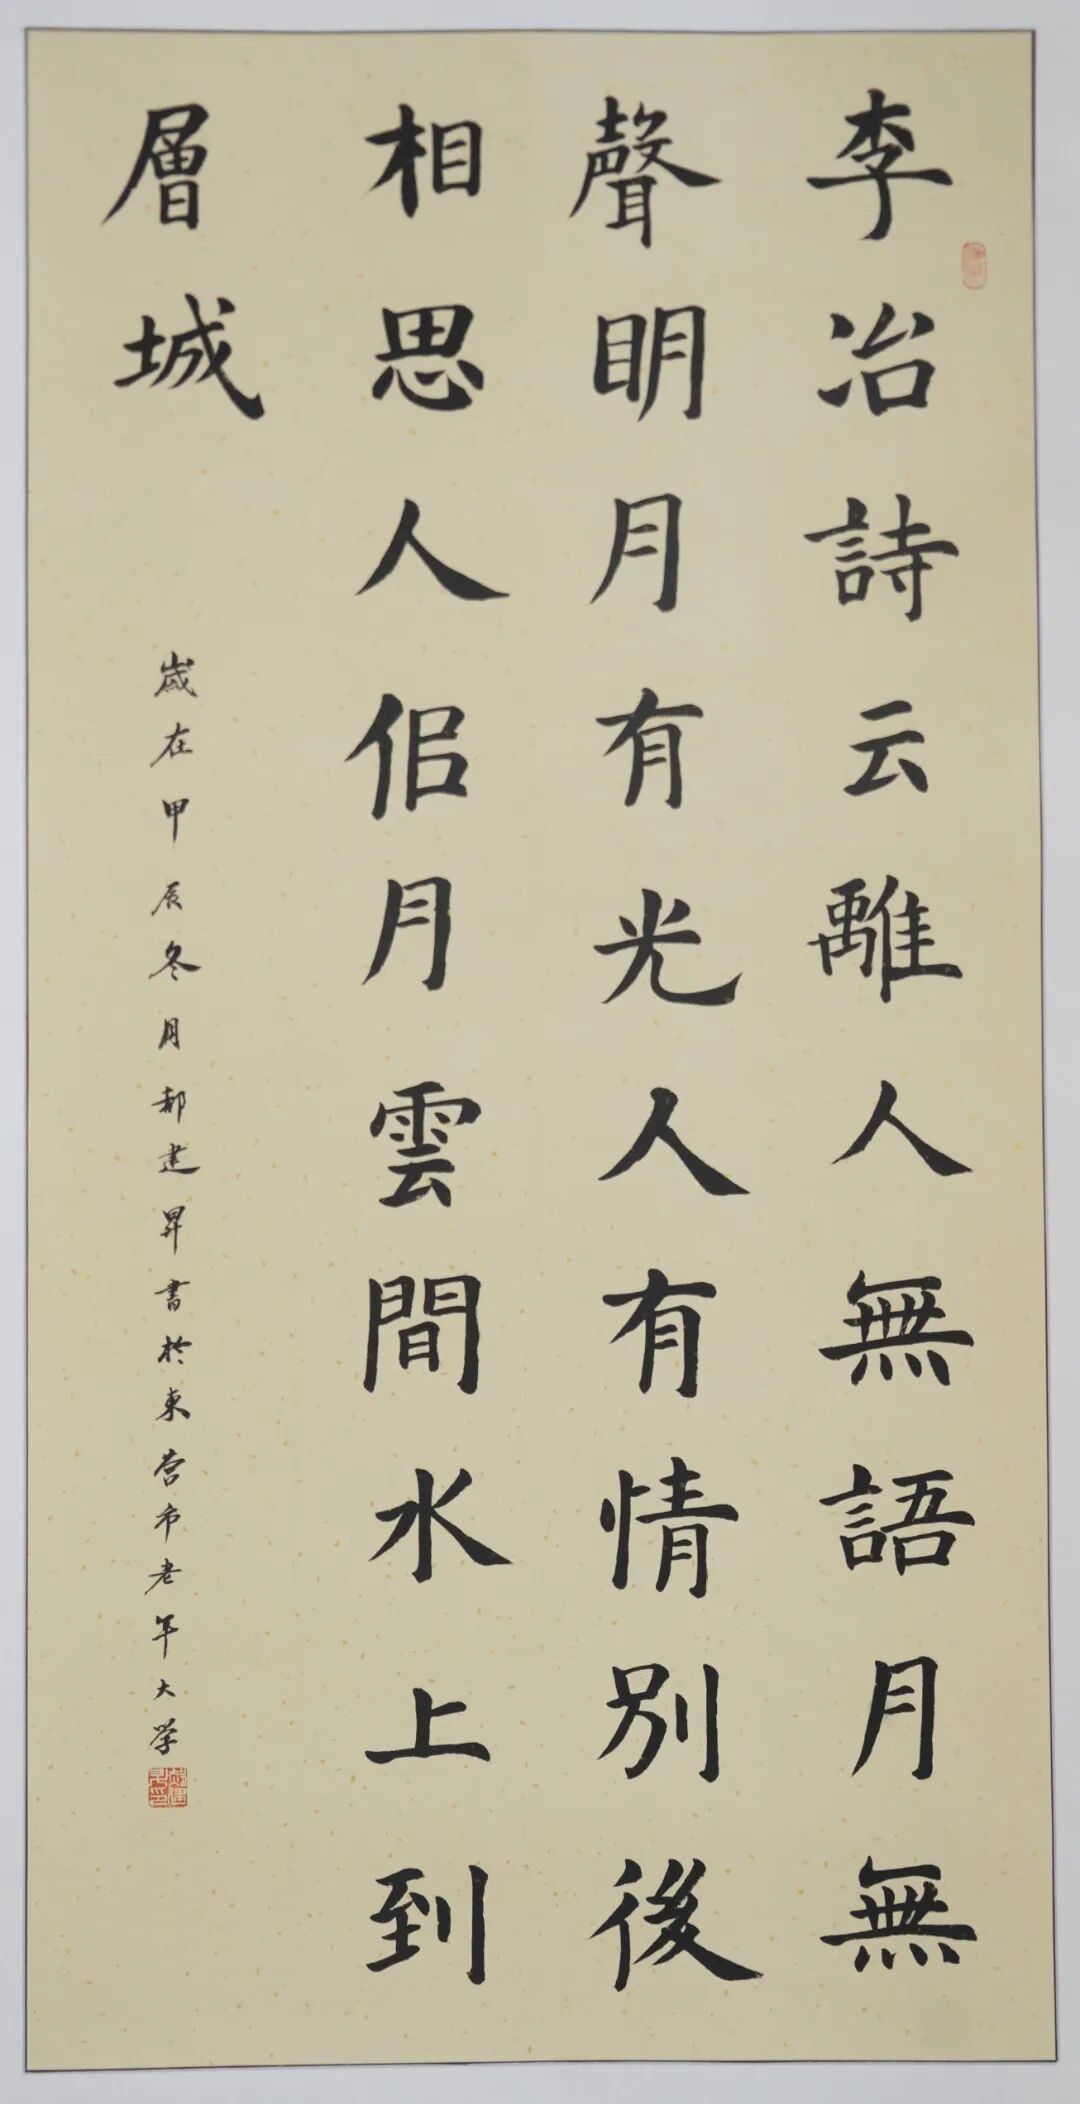 李冶詩云離人無語月無
聲明月有光人有情別後
相思人佀月雲間水上到
層城
歲在甲辰冬月郝建昇書於東营市老年大学